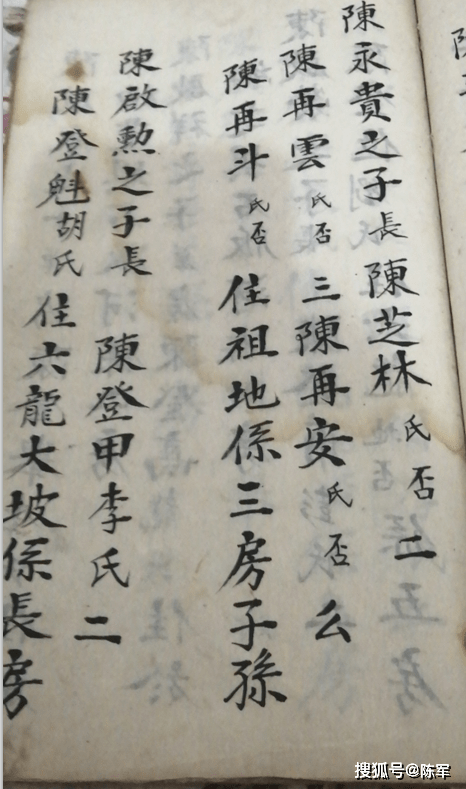 陳永貴之子長陳芝林氏否二
陳再雲氏否三陳再安氏否么
陳再斗氏否住祖地係三房子孫
陳啟勲之子長陳登甲李氏二
陳登魁胡氏住六龍大坡係長房
搜狐号@陈军